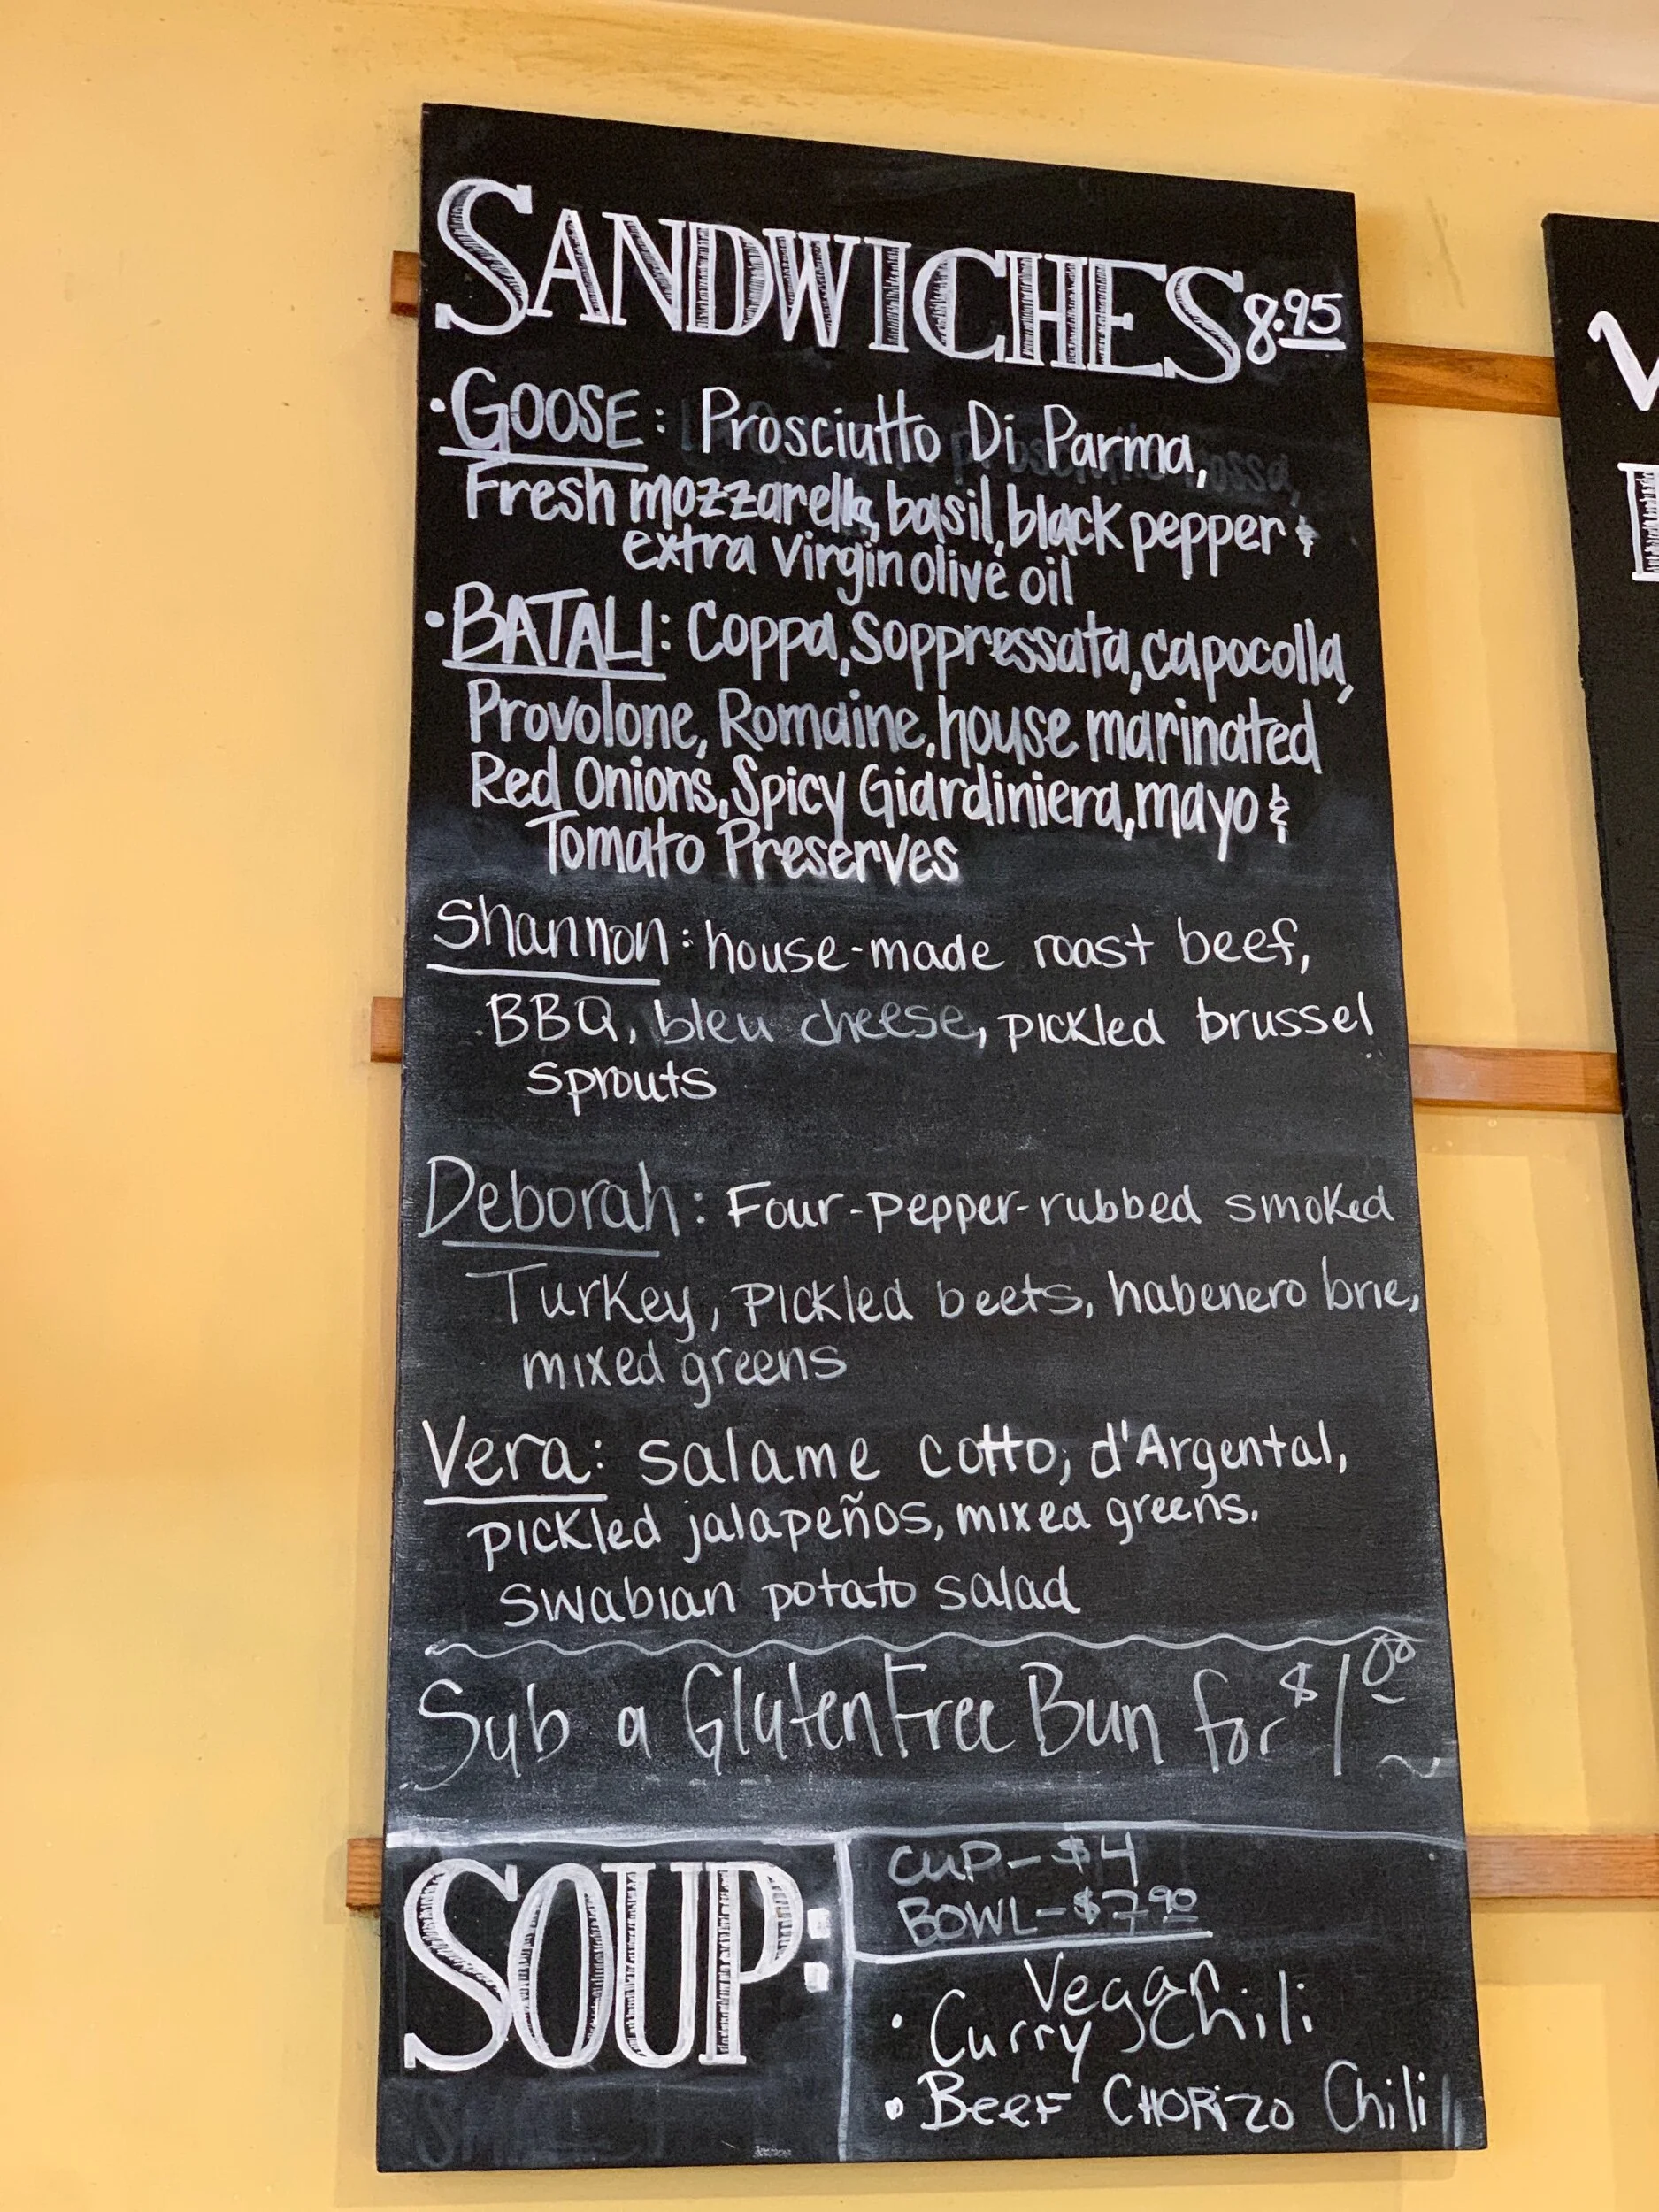 SANDWICHES 8.95
• GOOSE: Prosciutto Di Parma,
Fresh mozzarella, basil, black pepper &
extra virgin olive oil
• BATALI: Coppa, Soppressata, capocolla,
Provolone, Romaine, house marinated
Red Onions, Spicy Giardiniera, mayo &
Tomato Preserves
Shannon: house-made roast beef,
BBQ, bleu cheese, pickled brussel
sprouts
Deborah: Four-pepper-rubbed smoked
Turkey, pickled beets, habenero brie,
mixed greens
Vera: salame cotto, d'Argental,
pickled jalapeños, mixed greens.
swabian potato salad
Sub a Gluten Free Bun for $1.00
SOUP:
CUP - $4
BOWL - $7.90
Vegan
• Curry Chili
• Beef CHORIZO Chili